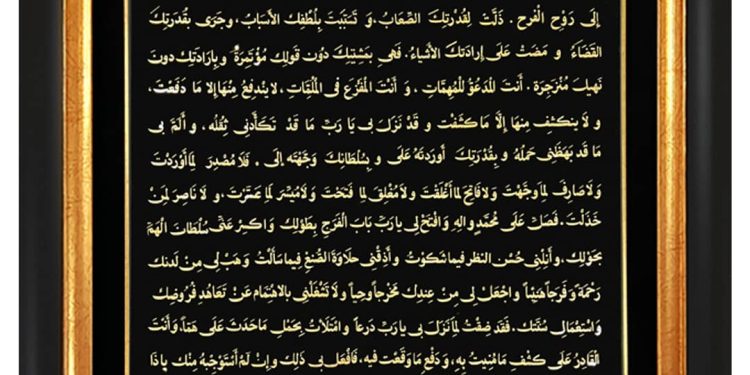 إِلَى رَوْحِ الْفَرَحِ . ذَلَّتْ لِقُدْرَتِكَ الصِّعَابُ، وَ تَسَبَّبَتْ بِلُطْفِكَ الْأَسْبَابُ، وجَرَى بِقُدْرَتِكَ
الْقَضَاءُ وَ مَضَتْ عَلَى إِرَادَتِكَ الْأَشْيَاءُ. فَهِيَ بِمَشِيَّتِكَ دُونَ قَوْلِكَ مُؤْتَمِرَةٌ وَ بِإِرَادَتِكَ دُونَ
نَهْيِكَ مُنْزَجِرَةٌ . أَنْتَ الْمَدْعُوُّ لِلْمُهِمَّاتِ ، وَ أَنْتَ الْمَفْزَعُ فِي الْمُلِمَّاتِ ، لَا يَنْدَفِعُ مِنْهَا إِلَّا مَا دَفَعْتَ ،
وَ لَا يَنْكَشِفُ مِنْهَا إِلَّا مَا كَشَفْتَ وَ قَدْ نَزَلَ بِي يَا رَبِّ مَا قَدْ تَكَأَّدَنِي ثِقْلُهُ ، وَ أَلَمَّ بِي
مَا قَدْ بَهَظَنِي حَمْلُهُ وَ بِقُدْرَتِكَ أَوْرَدْتَهُ عَلَيَّ وَ بِسُلْطَانِكَ وَجَّهْتَهُ إِلَيَّ . فَلَا مُصْدِرَ لِمَا أَوْرَدْتَ
وَلَا صَارِفَ لِمَا وَجَّهْتَ وَلَا فَاتِحَ لِمَا أَغْلَقْتَ وَلَا مُغْلِقَ لِمَا فَتَحْتَ وَلَا مُيَسِّرَ لِمَا عَسَّرْتَ ، وَ لَا نَاصِرَ لِمَنْ
خَذَلْتَ. فَصَلِّ عَلَى مُحَمَّدٍ وَالِهِ وَ افْتَحْ لِي يَا رَبِّ بَابَ الْفَرَجِ بِطَوْلِكَ وَ اكْسِرْ عَنِّي سُلْطَانَ الْهَمِّ
بِحَوْلِكَ ، وَ أَنِلْنِي حُسْنَ النَّظَرِ فِيمَا شَكَوْتُ وَ أَذِقْنِي حَلَاوَةَ الصُّنْعِ فِيمَا سَأَلْتُ وَ هَبْ لِي مِنْ لَدُنْكَ
رَحْمَةً وَ فَرَجاً هَنِيئاً وَ اجْعَلْ لِي مِنْ عِنْدِكَ مَخْرَجاً وَحِيّاً وَ لَا تَشْغَلْنِي بِالاهْتِمَامِ عَنْ تَعَاهُدِ فُرُوضِكَ
وَ اسْتِعْمَالِ سُنَّتِكَ . فَقَدْ ضِقْتُ لِمَا نَزَلَ بِي يَا رَبِّ ذَرْعاً وَ امْتَلَأْتُ بِحَمْلِ مَا حَدَثَ عَلَيَّ هَمّاً، وَ أَنْتَ
الْقَادِرُ عَلَى كَشْفِ مَا مُنِيتُ بِهِ ، وَ دَفْعِ مَا وَقَعْتُ فِيهِ ، فَافْعَلْ بِي ذَلِكَ وَ إِنْ لَمْ أَسْتَوْجِبْهُ مِنْكَ يَا ذَا